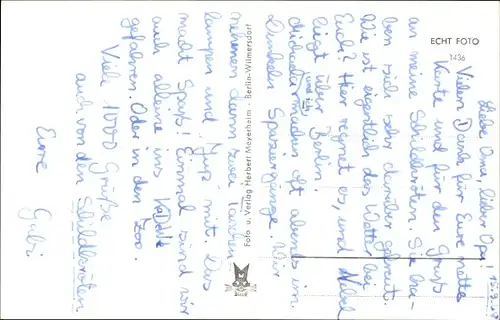 ECHT FOTO
1436
Liebe Oma, lieber Opa!
Vielen Dank für Eure nette
Karte und für den Gruß
an meine Schildkröten. Sie ha-
ben sich sehr darüber gefreut.
Wie ist eigentlich das Wetter bei
Euch? Hier regnet es, und Nebel
liegt über Berlin.
und ich machen oft abends im
Dunkeln Spaziergänge. Wir
nehmen dann zwei Taschen
lampen und mit. Das
macht Spaß! Einmal sind wir
auch alleine ins KaDeWe
gefahren. Oder in den Zoo.
Viele 1000 Grüße
auch von den Schildkröten
Eure
Gabi
Foto u. Verlag Herbert Meyerheim - Berlin-Wilmersdorf